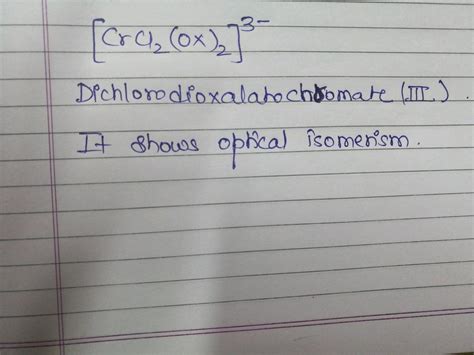 [CrCl₂(Ox)₂]³⁻
Dichlorodioxalatochromate (III).
It shows optical isomerism.